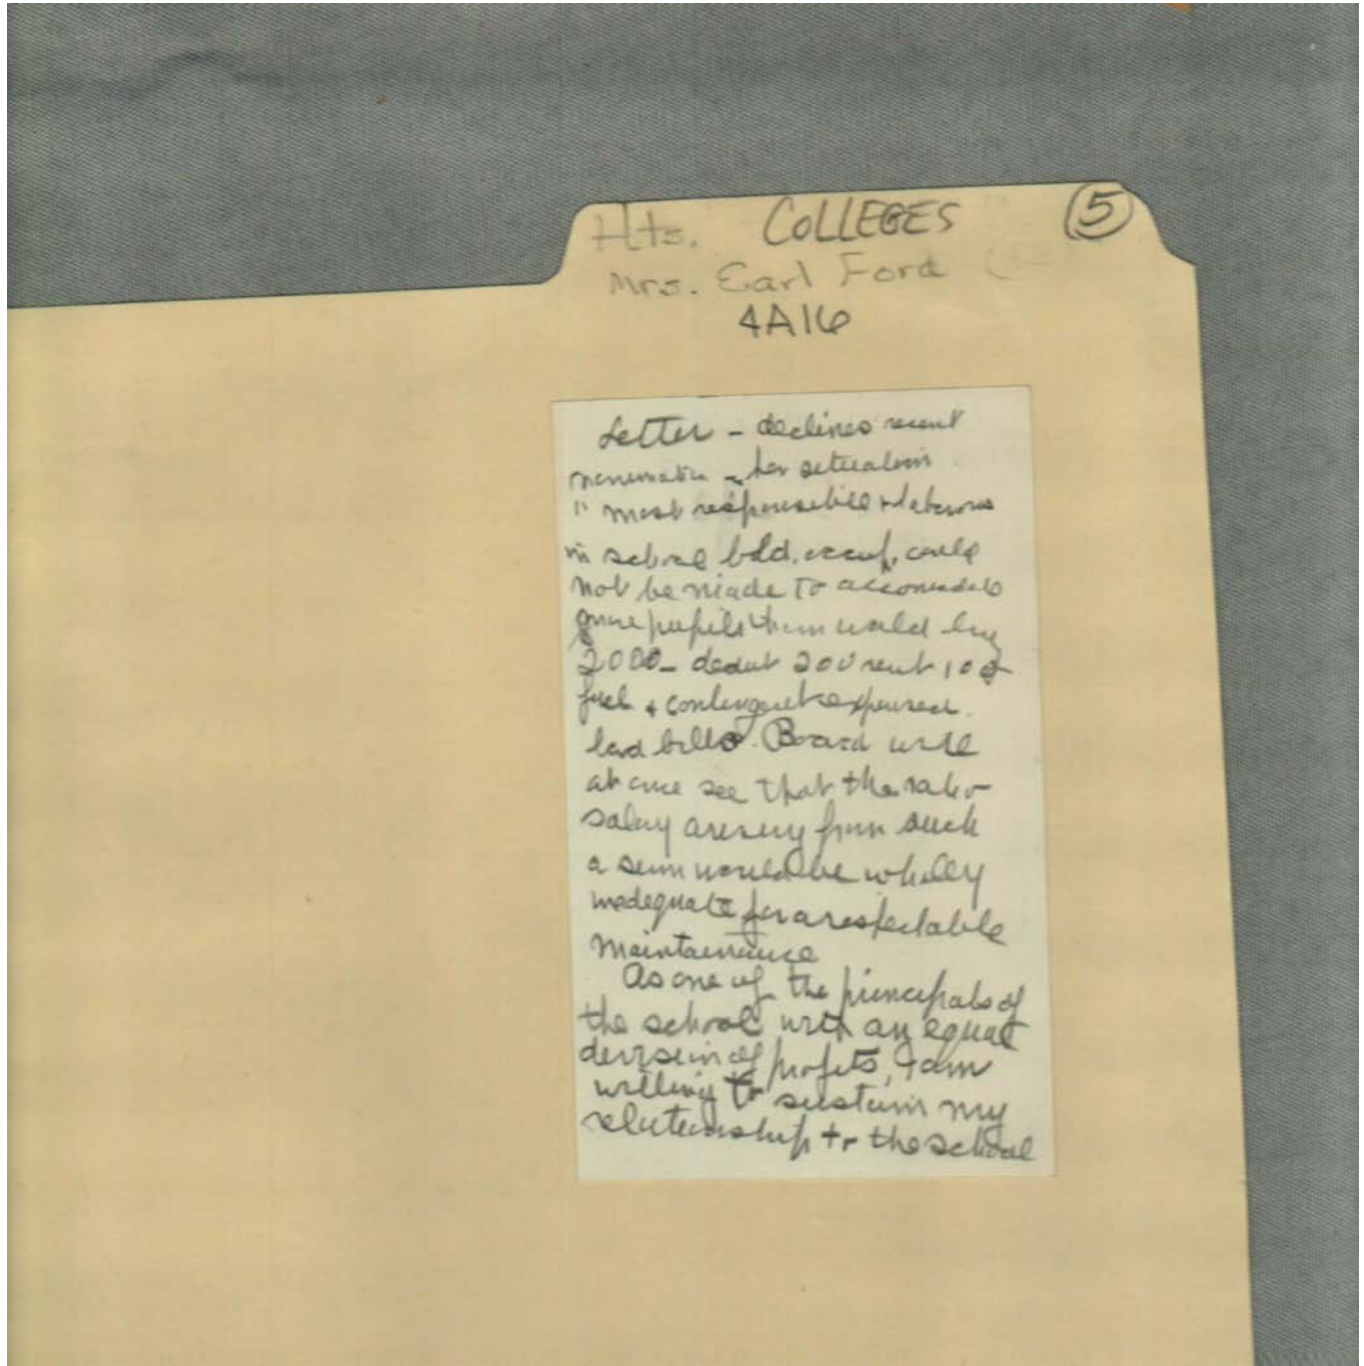 Hts. COLLEGES 5
Mrs. Earl Ford
4A16
Letter - declines recent
her situation
" most responsible + laborious
in school bld. could
not be made to accomodate
more pupils than would bring
2000 - deduct 200 rent 100
fuel + contingent expenses.
bad bills. Board will
at once see that the
salary arising from such
a sum would be wholly
inadequate for a respectable
maintainance
As one of the principals of
the school with an equal
division of profits, I am
willing to sustain my
relationship to the school